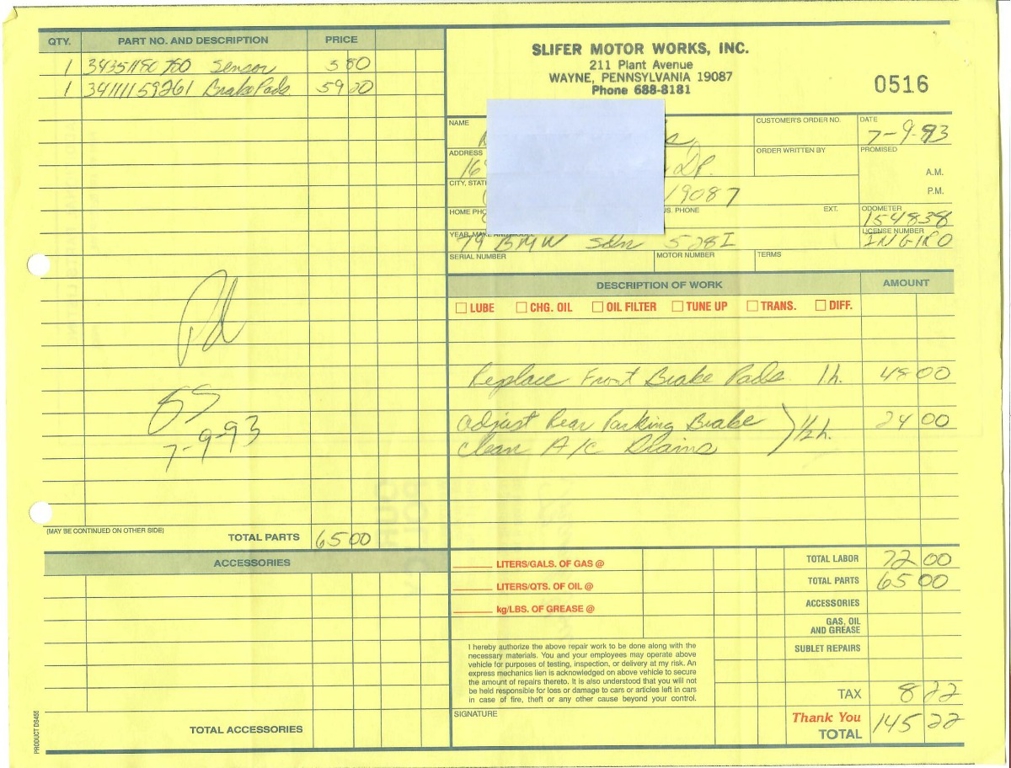 QTY. PART NO. AND DESCRIPTION PRICE
1 34351180780 Sensor 5 80
1 34111159261 Brake Pads 59 20
Pd
7-9-93
(MAY BE CONTINUED ON OTHER SIDE)
TOTAL PARTS 65 00
ACCESSORIES
TOTAL ACCESSORIES
PRODUCT DS450
SLIFER MOTOR WORKS, INC.
211 Plant Avenue
WAYNE, PENNSYLVANIA 19087
Phone 688-8181
0516
NAME CUSTOMER'S ORDER NO. DATE
7-9-93
ADDRESS ORDER WRITTEN BY PROMISED
16 Dr. A.M.
CITY, STAT P.M.
19087
HOME PHO S. PHONE EXT. ODOMETER
154838
YEAR, MAKE AND MODEL LICENSE NUMBER
79 BMW Sdn 528I
SERIAL NUMBER MOTOR NUMBER TERMS
DESCRIPTION OF WORK AMOUNT
LUBE CHG. OIL OIL FILTER TUNE UP TRANS. DIFF.
Replace Front Brake Pads 1h. 48 00
Adjust Rear Parking Brake ) 1/2 h. 24 00
Clean A/C Drains
LITERS/GALS. OF GAS @ TOTAL LABOR 72 00
LITERS/QTS. OF OIL @ TOTAL PARTS 65 00
kg/LBS. OF GREASE @ ACCESSORIES
GAS, OIL
AND GREASE
I hereby authorize the above repair work to be done along with the
necessary materials. You and your employees may operate above
vehicle for purposes of testing, inspection, or delivery at my risk. An
express mechanics lien is acknowledged on above vehicle to secure
the amount of repairs thereto. It is also understood that you will not
be held responsible for loss or damage to cars or articles left in cars
in case of fire, theft or any other cause beyond your control.
SUBLET REPAIRS
TAX 8 22
SIGNATURE
Thank You
TOTAL 145 22